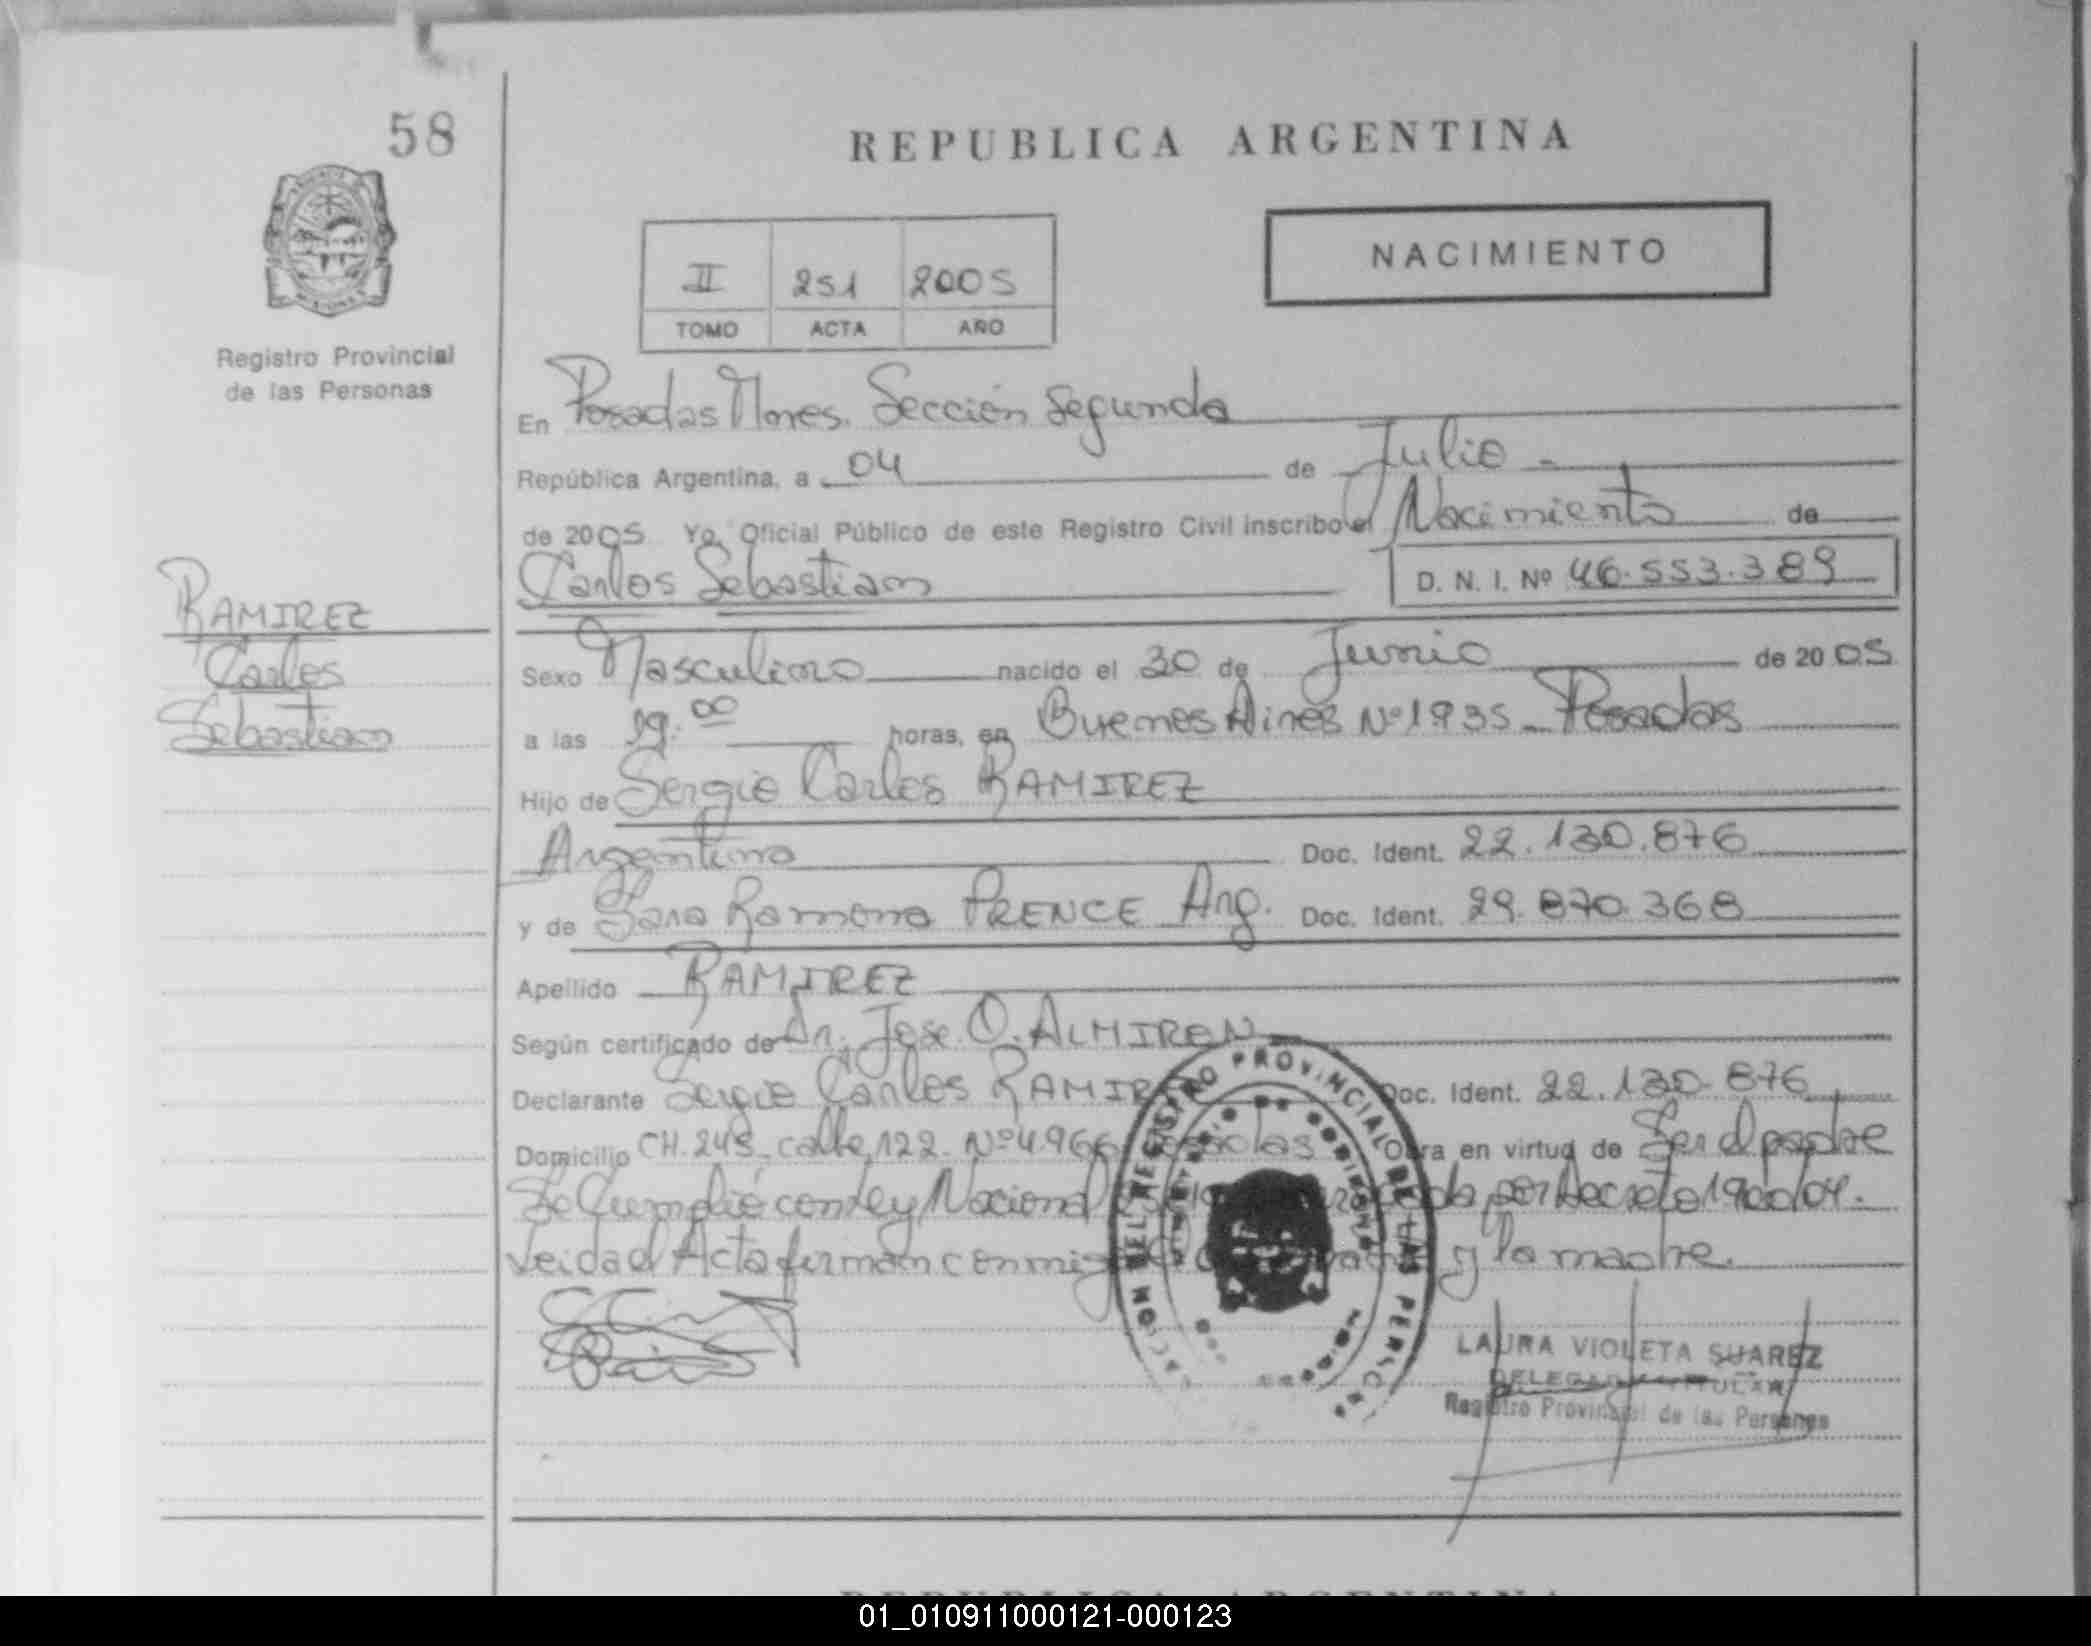 58
REPUBLICA ARGENTINA
NACIMIENTO
II 251 2005
TOMO ACTA AÑO
Registro Provincial
de las Personas
En Posadas Mnes. Sección Segunda
República Argentina, a 04 de Julio -
de 2005 Yo, Oficial Público de este Registro Civil inscribo el Nacimiento de
Carlos Sebastian D. N. I. Nº 46.553.389
RAMIREZ
Carlos
Sebastian
Sexo Masculino nacido el 30 de Junio de 2005
a las 19.00 horas, en Buenos Aires Nº 1935 - Posadas
Hijo de Sergio Carlos RAMIREZ
Argentino Doc. Ident. 22.130.876
y de Sara Ramona PRENCE Arg. Doc. Ident. 29.870.368
Apellido RAMIREZ
Según certificado de Dr. Jose O. ALMIRON
Declarante Sergio Carlos RAMIREZ Doc. Ident. 22.130.876
Domicilio CH. 245 - calle 122 - Nº 4966 Posadas Obra en virtud de Ser el padre
Se Cumplió con Ley Nacional por Decreto 1900/04.
Leida el Acta firman conmigo y la madre.
DEL REGISTRO PROVINCIAL DE LAS PERSONAS
LAURA VIOLETA SUAREZ
DELEGADA TITULAR
Registro Provincial de las Personas
REPUBLICA ARGENTINA
01_010911000121-000123